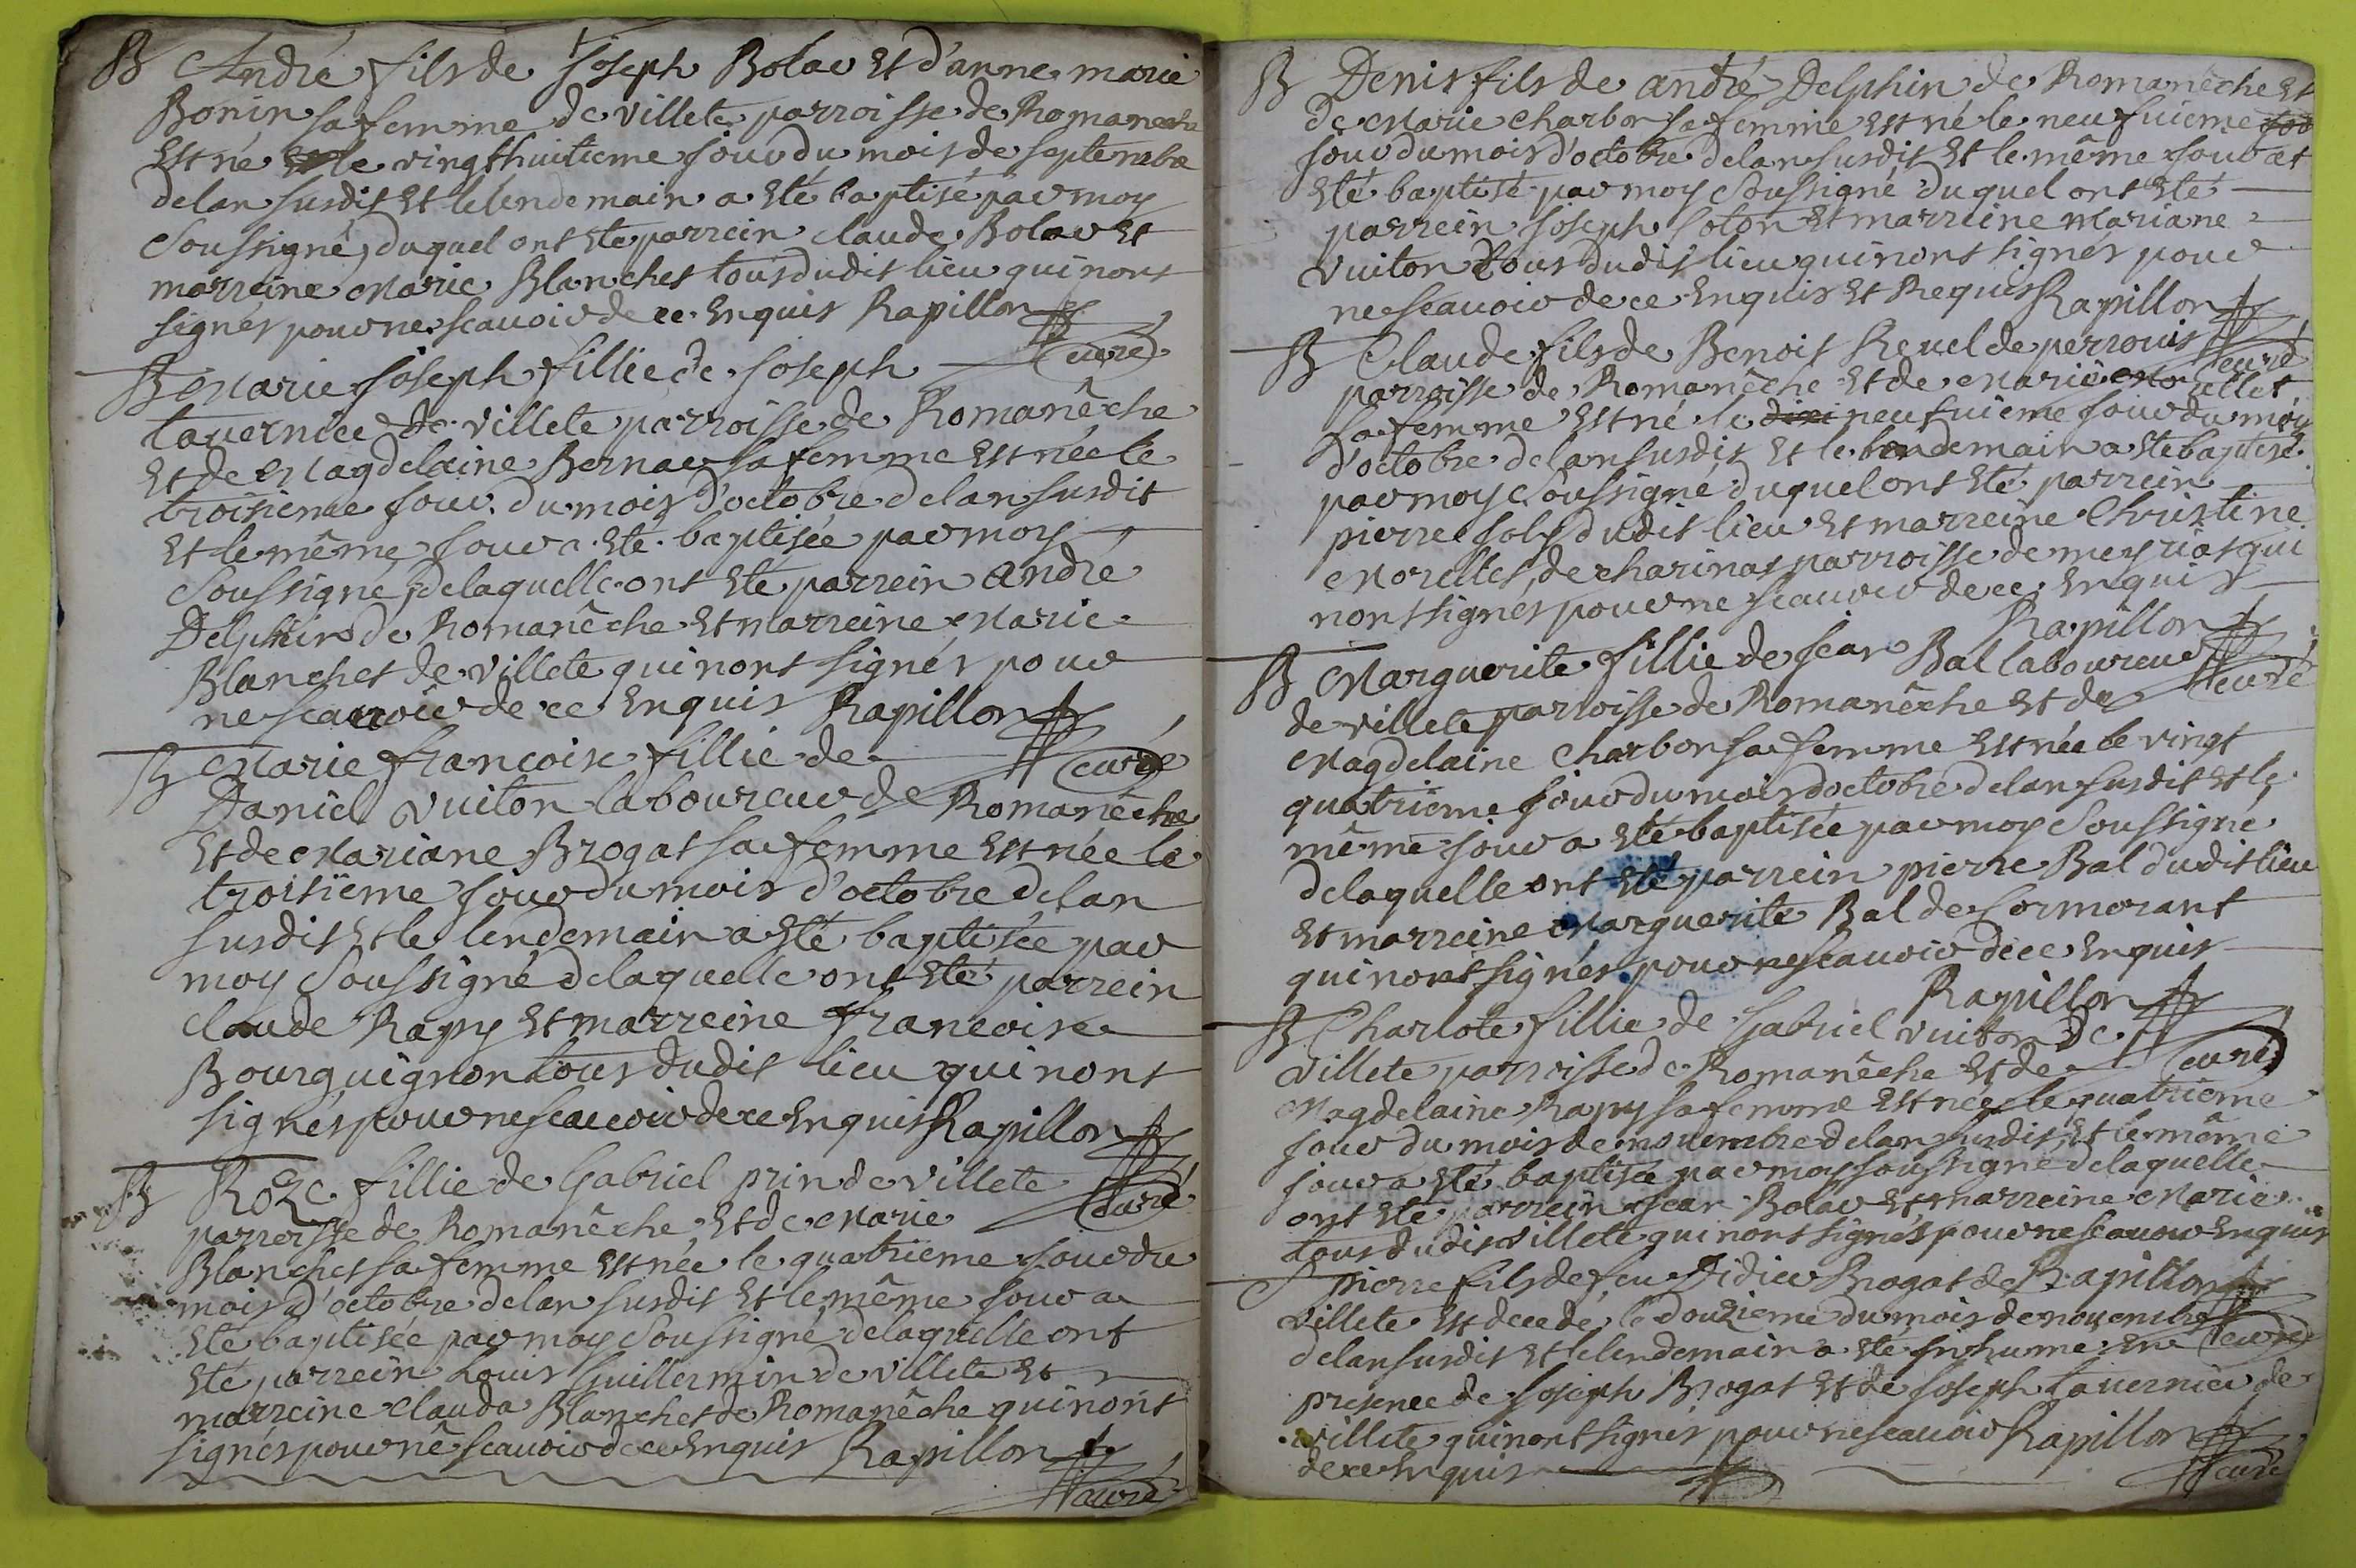 B André fils de Joseph Bolac Et d'anne marie
Bonin sa femme de villete parroisse de Romaneche
Est né le vingt huitieme jour du mois de septembre
de lan susdit Et le lendemain a Eté baptisé par moy
Soussigné, duquel ont Ete parrein claude Bolac Et
marreine Marie Blanchet tous dudit lieu qui nont
signés pour ne scauoir de ce Enquis Rapillon
curé
B Marie Joseph fillie de Joseph
tavernier de villete parroisse de Romanêche
Et de Magdelaine Bernac sa femme Est née le
troisieme jour du mois d'octobre de lan susdit
Et le même jour a Eté baptisée par moy
Soussigné, de laquelle ont Eté parrein André
Delphin de Romanêche Et marreine Marie
Blanchet de villete qui nont signés pour
ne scauoir de ce Enquis Rapillon
B Marie francoise fillie de curé
Daniel Vuiton laboureur de Romanêche
Et de Mariane Brogat sa femme Est née le
troisième jour du mois d'octobre de lan
susdit Et le lendemain a Eté baptisée par
moy Soussigné de laquelle ont Eté parrein
claude Rapy Et marreine francoise
Bourguignon tous dudit lieu qui nont
signés pour ne scauoir de ce Enquis Rapillon
B Roze fillie de Gabriel prin de villete
parroisse de Romanêche, Et de Marie curé
Blanchet sa femme Est née le quatrieme jour du
mois d'octobre de lan susdit Et le même jour a
Eté baptisée par moy Soussigné de laquelle ont
Eté parrein Louis Guillermin de villete Et
marreine clauda Blanchet de Romanêche qui nont
signés pour ne scauoir de ce Enquis Rapillon
curé
B Denis fils de André Delphin de Romanêche Et
de Marie charbon sa femme Est né le neufuieme
jour du mois d'octobre de lan susdit Et le même jour at
Eté baptisé par moy Soussigné duquel ont Eté
parrein Joseph Solon Et marreine Mariane
Vuiton tous dudit lieu qui nont signés pour
ne scauoir de ce Enquis Et Requis Rapillon
B Claude fils de Benoit Reuel de perrouis curé
parroisse de Romanêche Et de Marie
sa femme Est né le neufuieme jour du moy
d'octobre de lan susdit Et le lendemain a Ete baptisé
par moy Soussigné duquel ont Eté parrein
pierre Joly dudit lieu Et marreine Christine
Morellet, de charinas parroisse de meyriat qui
nont signés pour ne scauoir de ce Enquis
Rapillon
B Marguerite fillie de jean Bal laboureur
de villete parroisse de Romanêche Et de curé
Magdelaine Charbon sa femme Est née le vingt
quatrieme jour du mois doctobre de lan susdit Et le
même jour a Eté baptisée par moy Soussigné
de laquelle ont Eté parrein pierre Bal dudit lieu
Et marreine Marguerite Bal de Cormorant
qui nont signés pour ne scauoir de ce Enquis
Rapillon
B Charlote fillie de Gabriel Vuiton de
Villete parroisse de Romanêche Et de curé
Magdelaine Rapy sa femme Est née le quatrieme
jour du mois de nouembre de lan susdit, Et le même
jour a Eté baptisée par moy soussigné de laquelle
ont Eté parrein jean Bolac Et marreine Marie
tous dudit villete qui nont signés pour ne scauoir Enquis
S pierre fils de feu Didier Brogat de Rapillon
Villete Est decedé le douzieme du mois de nouembre
de lan susdit Et le lendemain a Eté Inhumé En curé
presence de Joseph Brogat Et de Joseph tavernier de
villete qui nont signés pour ne scauoir Rapillon
de ce Enquis curé